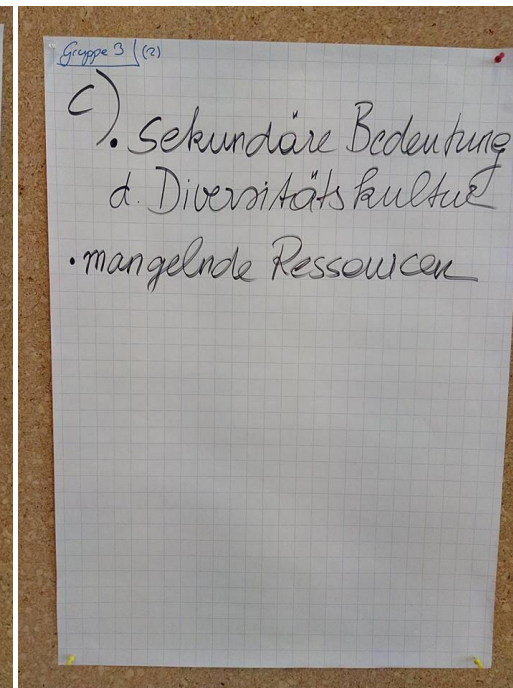 Gruppe 3 (2)
C)
• Sekundäre Bedeutung
d. Diversitätskultur
• mangelnde Ressourcen